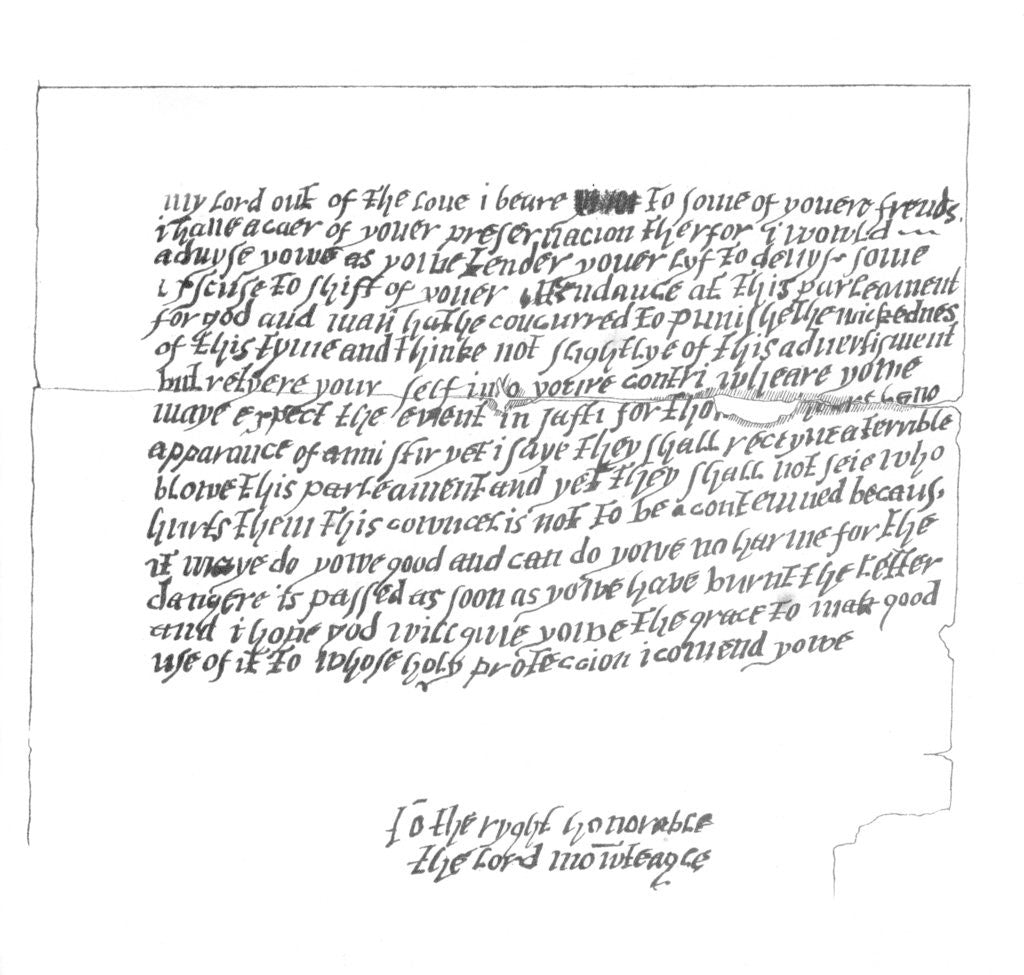 my lord out of the loue i beare to some of youere frends
i haue a caer of youer preseruacion therfor i would
aduyse yowe as yowe tender youer lyf to deuys some
exscuse to shift of youer attendance at this parleament
for god and man hathe concurred to punishe the wickednes
of this tyme and thinke not slightlye of this aduertisment
but retyere your self into youre contri wheare yowe
maye expect the euent in safti for tho be no
apparance of anni stir yet i saye they shall receyue a terrible
blowe this parleament and yet they shall not seie who
hurts them this cowncel is not to be a contemned becaus
it maye do yowe good and can do yowe no harme for the
dangere is passed as soon as yowe have burnt the letter
and i hope god will giue yowe the grace to mak good
use of it to whose holy proteccion i comend yowe
To the ryght honorable
the lord mowteagle